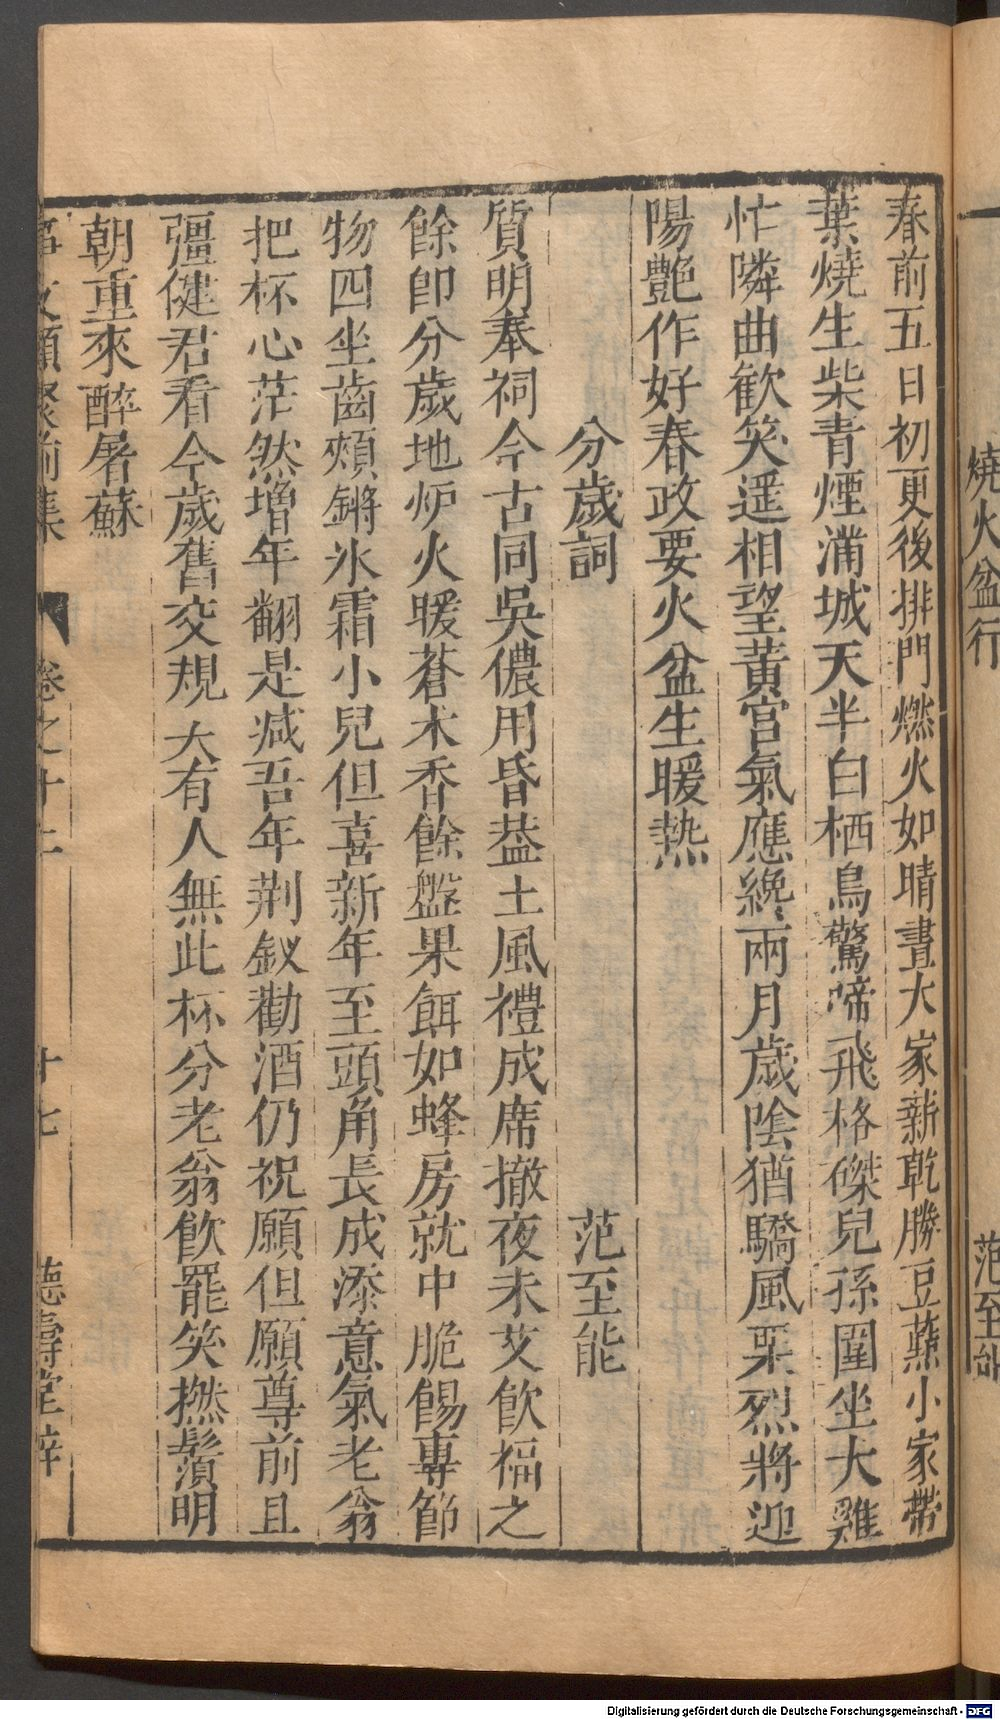 燒火盆行 范至能
春前五日初更後排門燃火如晴晝大家新乾勝豆䕸小家帶
葉燒生柴青煙滿城天半白栖鳥驚啼飛格磔兒孫圍坐犬雞
忙隣曲歡笑遥相望黃宫氣應纔兩月歲陰猶驕風栗烈將迎
陽艶作好春政要火盆生暖熱
分歲詞 范至能
質明奉祠今古同吳儂用昏葢土風禮成席撤夜未艾飲福之
餘卽分歲地炉火暖蒼术香餘盤果餌如蜂房就中脆餳專節
物四坐齒頰鏘氷霜小兒但喜新年至頭角長成添意氣老翁
把杯心茫然增年翻是减吾年荆釵勸酒仍祝願但願尊前且
彊健君看今歲舊交規大有人無此杯分老翁飲罷笑撚鬚明
朝重來醉屠蘇
文類聚前集 卷之十二 十七 德壽堂梓
Digitalisierung gefördert durch die Deutsche Forschungsgemeinschaft - DFG